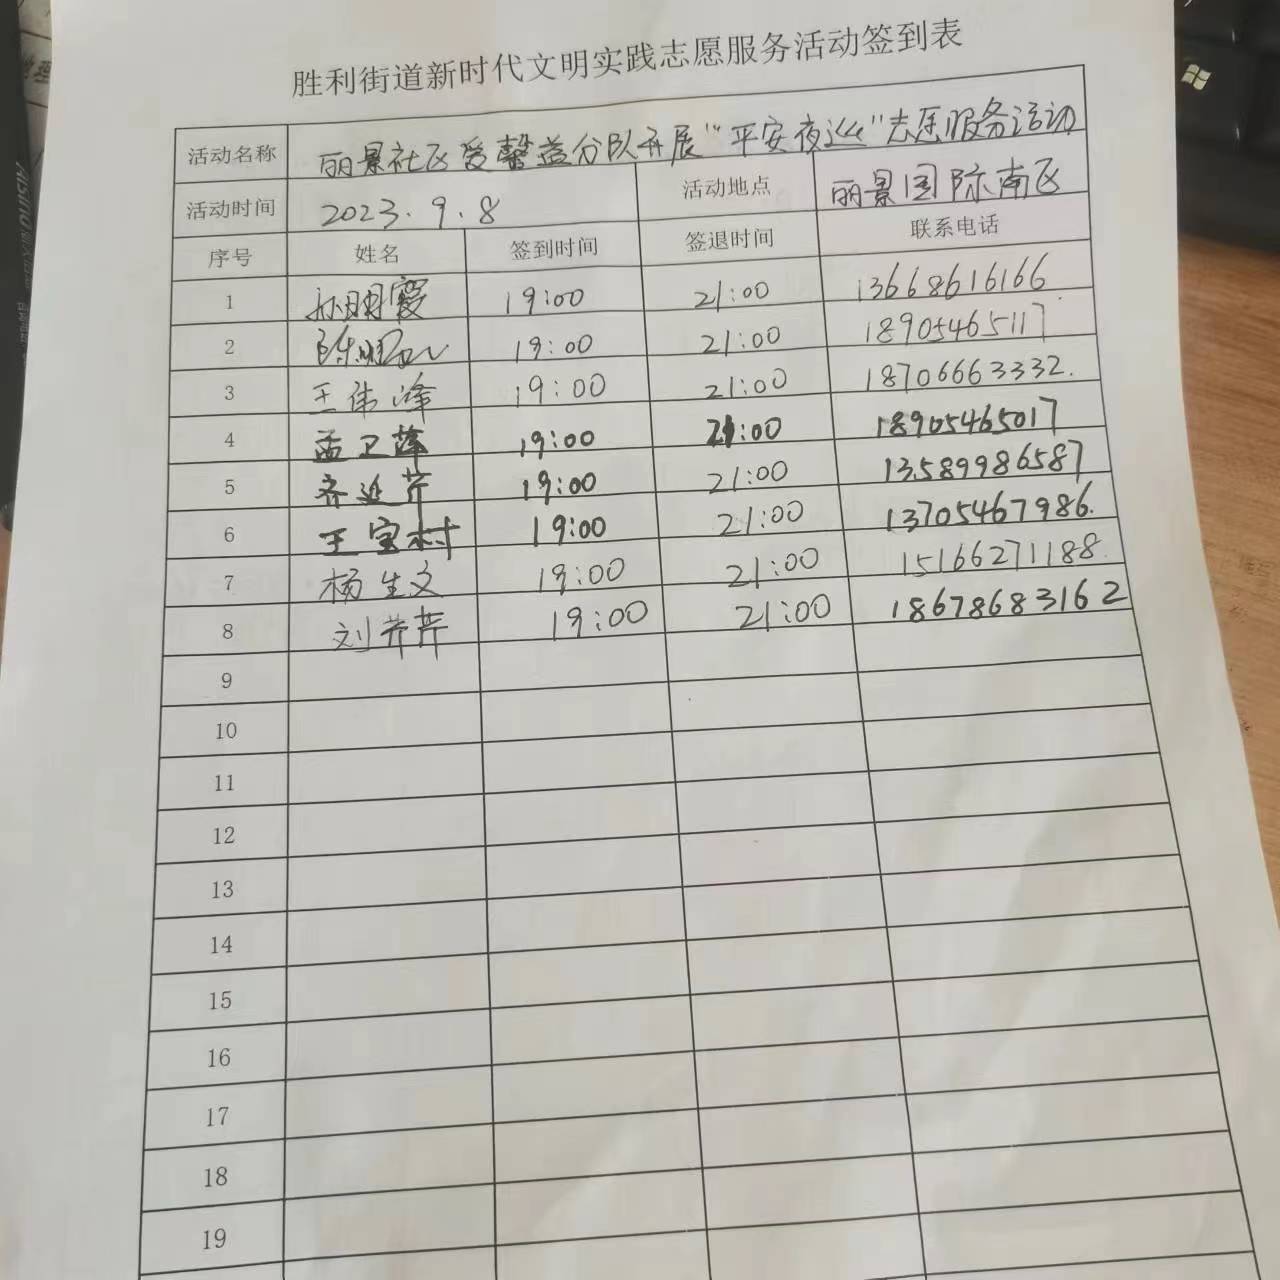 胜利街道新时代文明实践志愿服务活动签到表
活动名称 丽景社区爱馨益分队开展“平安夜巡”志愿服务活动
活动时间 2023.9.8 活动地点 丽景国际南区
序号 姓名 签到时间 签退时间 联系电话
1 孙明霞 19:00 21:00 13668616166
2 陈明 19:00 21:00 18905465117
3 王伟峰 19:00 21:00 18706663332.
4 孟卫萍 19:00 21:00 18905465017
5 齐延芹 19:00 21:00 13589986587
6 王宝村 19:00 21:00 13705467986.
7 杨生文 19:00 21:00 15166271188.
8 刘芹芹 19:00 21:00 18678683162
9
10
11
12
13
14
15
16
17
18
19